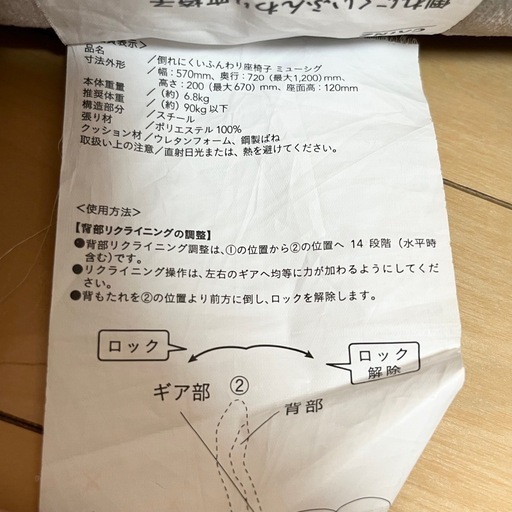 倒れにくいふんわり座椅子
CAINZ
表示】
品名／倒れにくいふんわり座椅子 ミューシグ
寸法外形／幅：570mm、奥行：720（最大1,200）mm、
高さ：200（最大670）mm、座面高：120mm
本体重量／（約）6.8kg
推奨体重／（約）90kg 以下
構造部分／スチール
張り材／ポリエステル 100%
クッション材／ウレタンフォーム、鋼製ばね
取扱い上の注意／直射日光または、熱を避けてください。
〈使用方法〉
【背部リクライニングの調整】
●背部リクライニング調整は、①の位置から②の位置へ 14 段階（水平時
含む）です。
●リクライニング操作は、左右のギアへ均等に力が加わるようにしてくだ
さい。
●背もたれを②の位置より前方に倒し、ロックを解除します。
ロック
ロック
解除
ギア部
②
背部